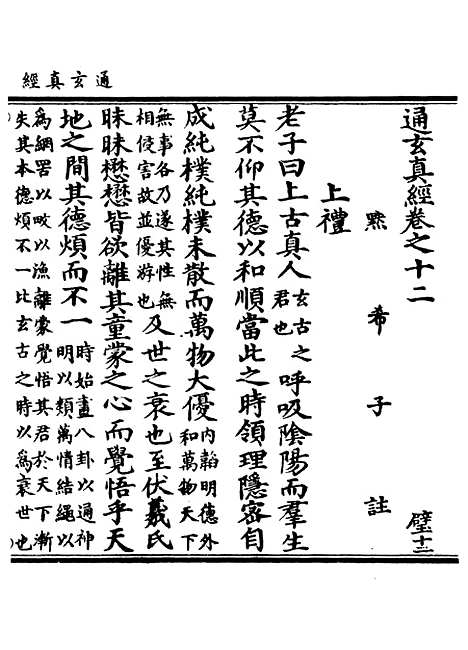 通玄真經
通玄真經卷之十二
黙希子註 璧十二
上禮
老子曰上古真人玄古之君也呼吸陰陽而羣生
莫不仰其德以和順當此之時領理隱密自
成純樸純樸未散而萬物大優內韜明德外和萬物天下
無事各乃遂其性無相侵害故並優游也及世之衰也至伏羲氏
昧昧懋懋皆欲離其童蒙之心而覺悟乎天
地之間其德煩而不一時始畫八卦以通神明以類萬情結繩以
為網罟以畋以漁離蒙覺悟其君於天下漸失其本德煩不一比玄古之時以為衰世也